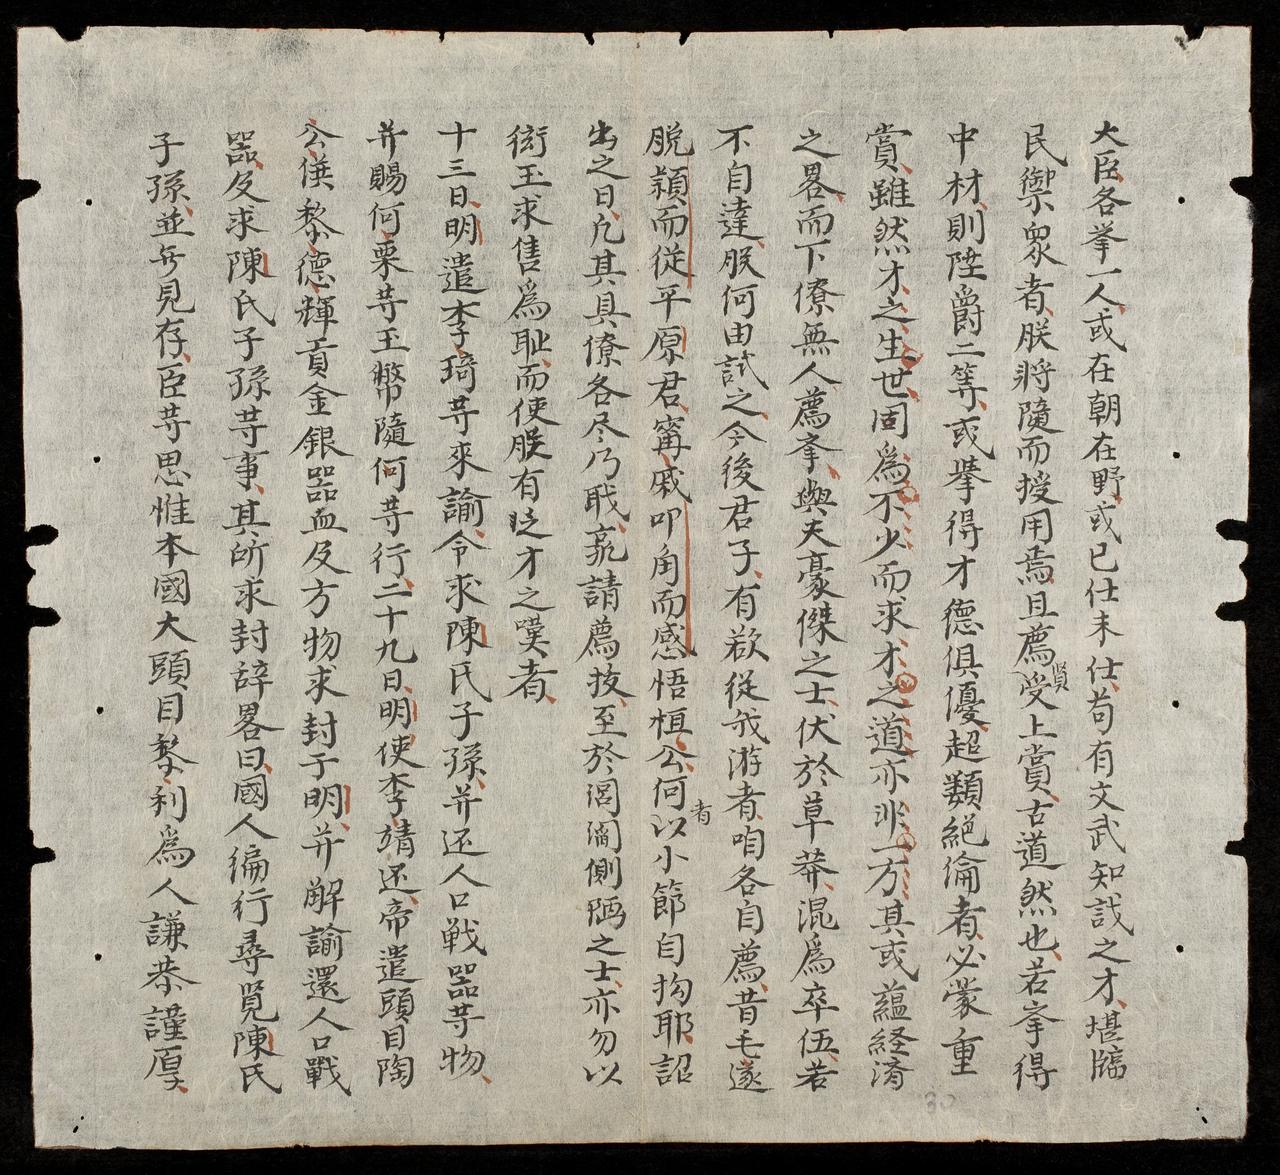 大臣各挙一人或在朝在野或已仕未仕苟有文武知識之才堪臨
民禦衆者朕將隨而授用焉且薦賢受上賞古道然也若挙得
中材則陞爵二等或挙得才德俱優超類絕倫者必蒙重
賞雖然才之生世固爲不少而求才之道亦非一方其或蘊経済
之畧而下僚無人薦挙與夫豪傑之士伏於草莽混爲卒伍若
不自達朕何由試之今後君子有欲從我游者咱各自薦昔毛遂
脱穎而従平原君甯戚叩角而感悟桓公何者以小節自拘耶詔
出之日凡其具僚各尽乃職亮請薦拔至於閭閻側陋之士亦勿以
衒玉求售爲耻而使朕有乏才之嘆者
十三日明遣李琦䓁來諭令求陳氏子孫并还人口戦器䓁物
并賜何栗䓁玉幣隨何䓁行二十九日明使李靖还帝遣頭目陶
公僎黎德輝貢金銀器皿及方物求封于明并解諭還人口戰
器及求陳氏子孫䓁事其所求封辞畧曰國人徧行尋覓陳氏
子孫並無見存臣䓁思惟本國大頭目黎利爲人謙恭謹厚